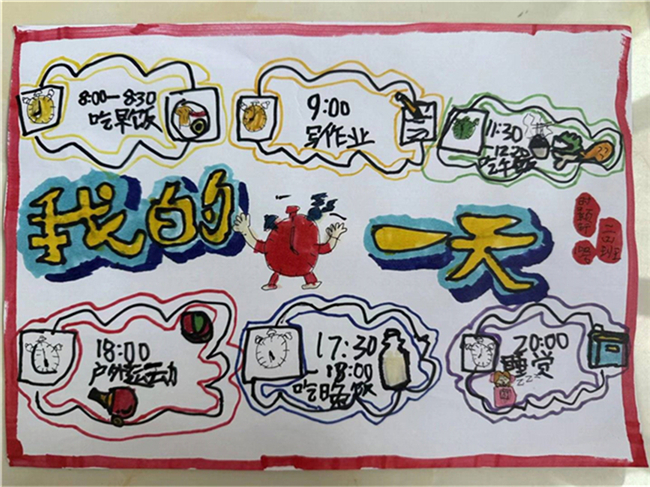 8:00—8:30
吃早饭
9:00
写作业
11:30
吃午饭
我的一天
二(4)班
18:00
户外运动
17:30
—18:00
吃晚饭
20:00
睡觉
zzz